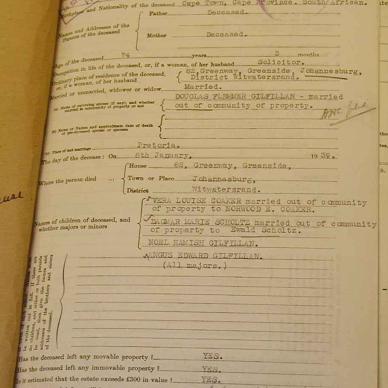 Birthplace and Nationality of the deceased Cape Town, Cape Province. South African.
Names and Addresses of the Parents of the deceased
Father Deceased.
Mother Deceased.
Age of the deceased years months
Occupation in life of the deceased, or, if a woman, of her husband Solicitor.
Ordinary place of residence of the deceased, or, if a woman, of her husband
62, Greenway, Greenside, Johannesburg,
District Witwatersrand.
Married or unmarried, widower or widow Married.
(a) Name of surviving spouse (if any), and whether married in community of property or not
DOUGLAS FLEMMER GILFILLAN - married
out of community of property.
(b) Name or Names and approximate date of death of predeceased spouse or spouses
Place of last marriage Pretoria.
The day of the decease: On 8th January, 19
Where the person died
House 62, Greenway, Greenside,
Town or Place Johannesburg,
District Witwatersrand.
Names of children of deceased, and whether majors or minors
VERA LOUISE COAKER married out of community
of property to NORWOOD E. COAKER.
DAGMAR MARIE SCHOLTZ married out of community
of property to Ewald Scholtz.
NOEL HAMISH GILFILLAN.
ANGUS EDWARD GILFILLAN.
(All majors.)
Has the deceased left any movable property? YES.
Has the deceased left any immovable property? YES.
Is it estimated that the estate exceeds £300 in value? YES.